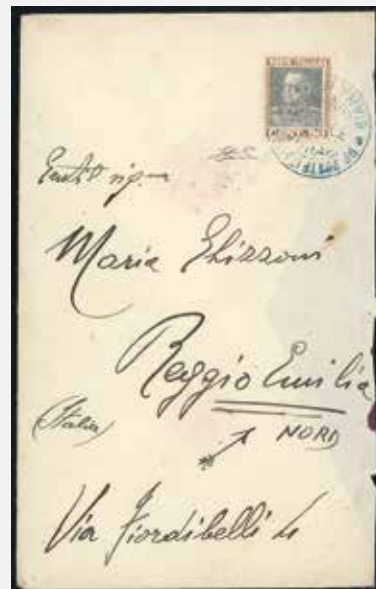 Maria Ghizzoni
Reggio Emilia
(Italia)
NORD
Via Fiordibelli 4